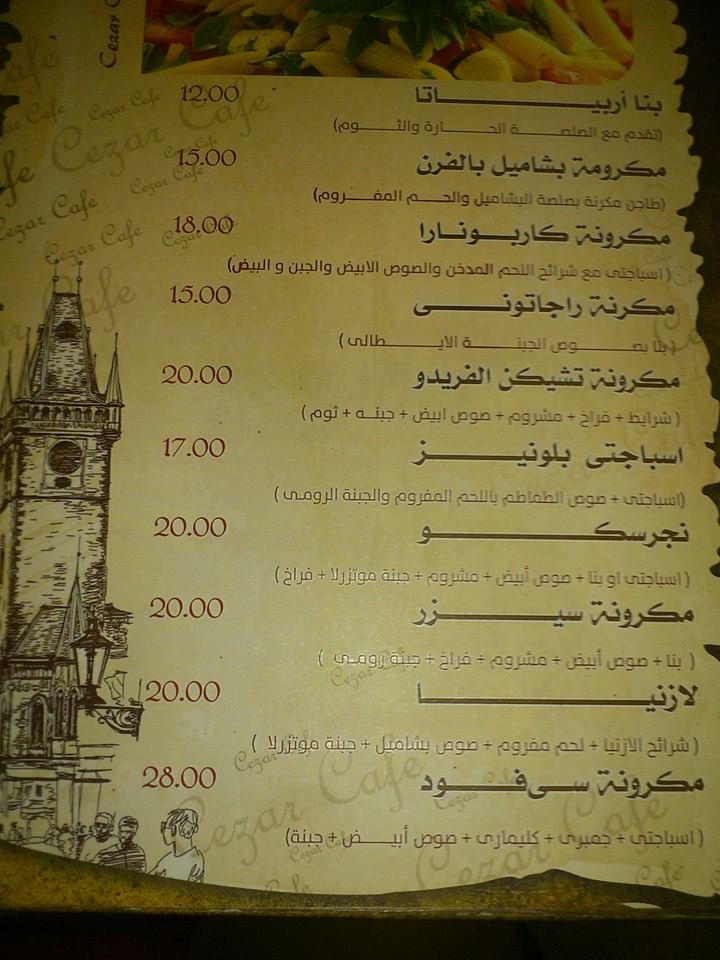 Cezar
بنا أربياتا 12.00
(تقدم مع الصلصة الحارة والثوم)
مكرومة بشاميل بالفرن 15.00
(طاجن مكرنة بصلصة البشاميل والحم المفروم)
مكرونة كاربونارا 18.00
( اسباجتى مع شرائح اللحم المدخن والصوص الابيض والجبن و البيض)
مكرنة راجاتونى 15.00
( بنا بصوص الجبنة الايطالى )
مكرونة تشيكن الفريدو 20.00
( شرايط + فراخ + مشروم + صوص ابيض + جبنه + ثوم )
اسباجتى بلونيز 17.00
(اسباجتى + صوص الطماطم باللحم المفروم والجبنة الرومى )
نجرسكو 20.00
( اسباجتى او بنا + صوص أبيض + مشروم + جبنة موتزرلا + فراخ )
مكرونة سيزر 20.00
( بنا + صوص أبيض + مشروم + فراخ + جبنة رومى )
لازنيا 20.00
( شرائح الازنيا + لحم مفروم + صوص بشاميل + جبنة موتزرلا )
مكرونة سى فود 28.00
( اسباجتى + جمبرى + كليمارى + صوص أبيض + جبنة)
Cezar Cafe